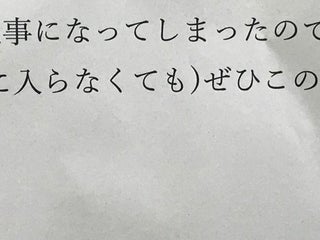 事になってしまったので
に入らなくても)ぜひこの